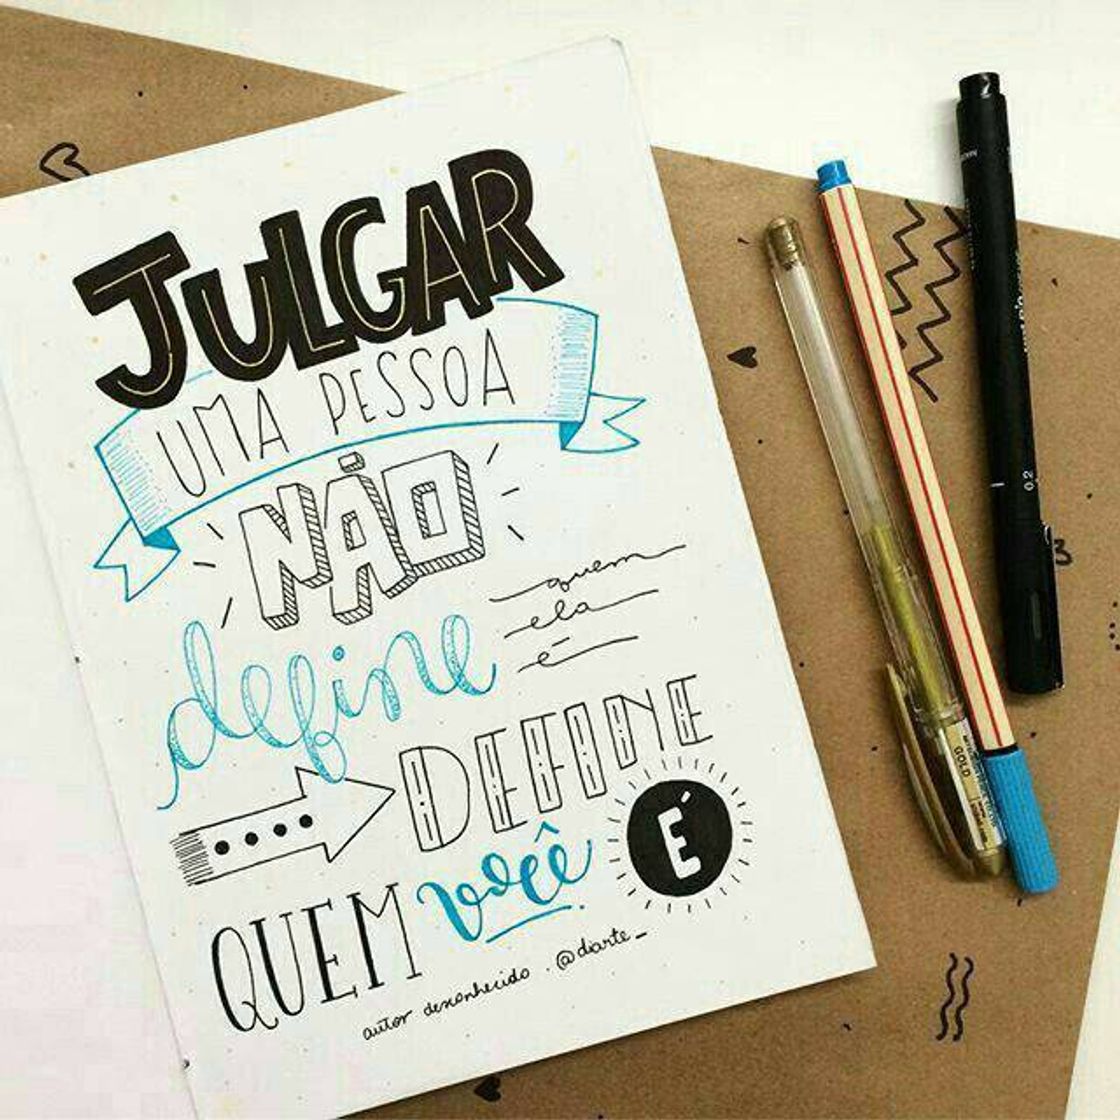 JULGAR
UMA PESSOA
NÃO
define
quem
ela
é
DEFINE
QUEM você É
autor desconhecido . @diarte_
GOLD
0.2